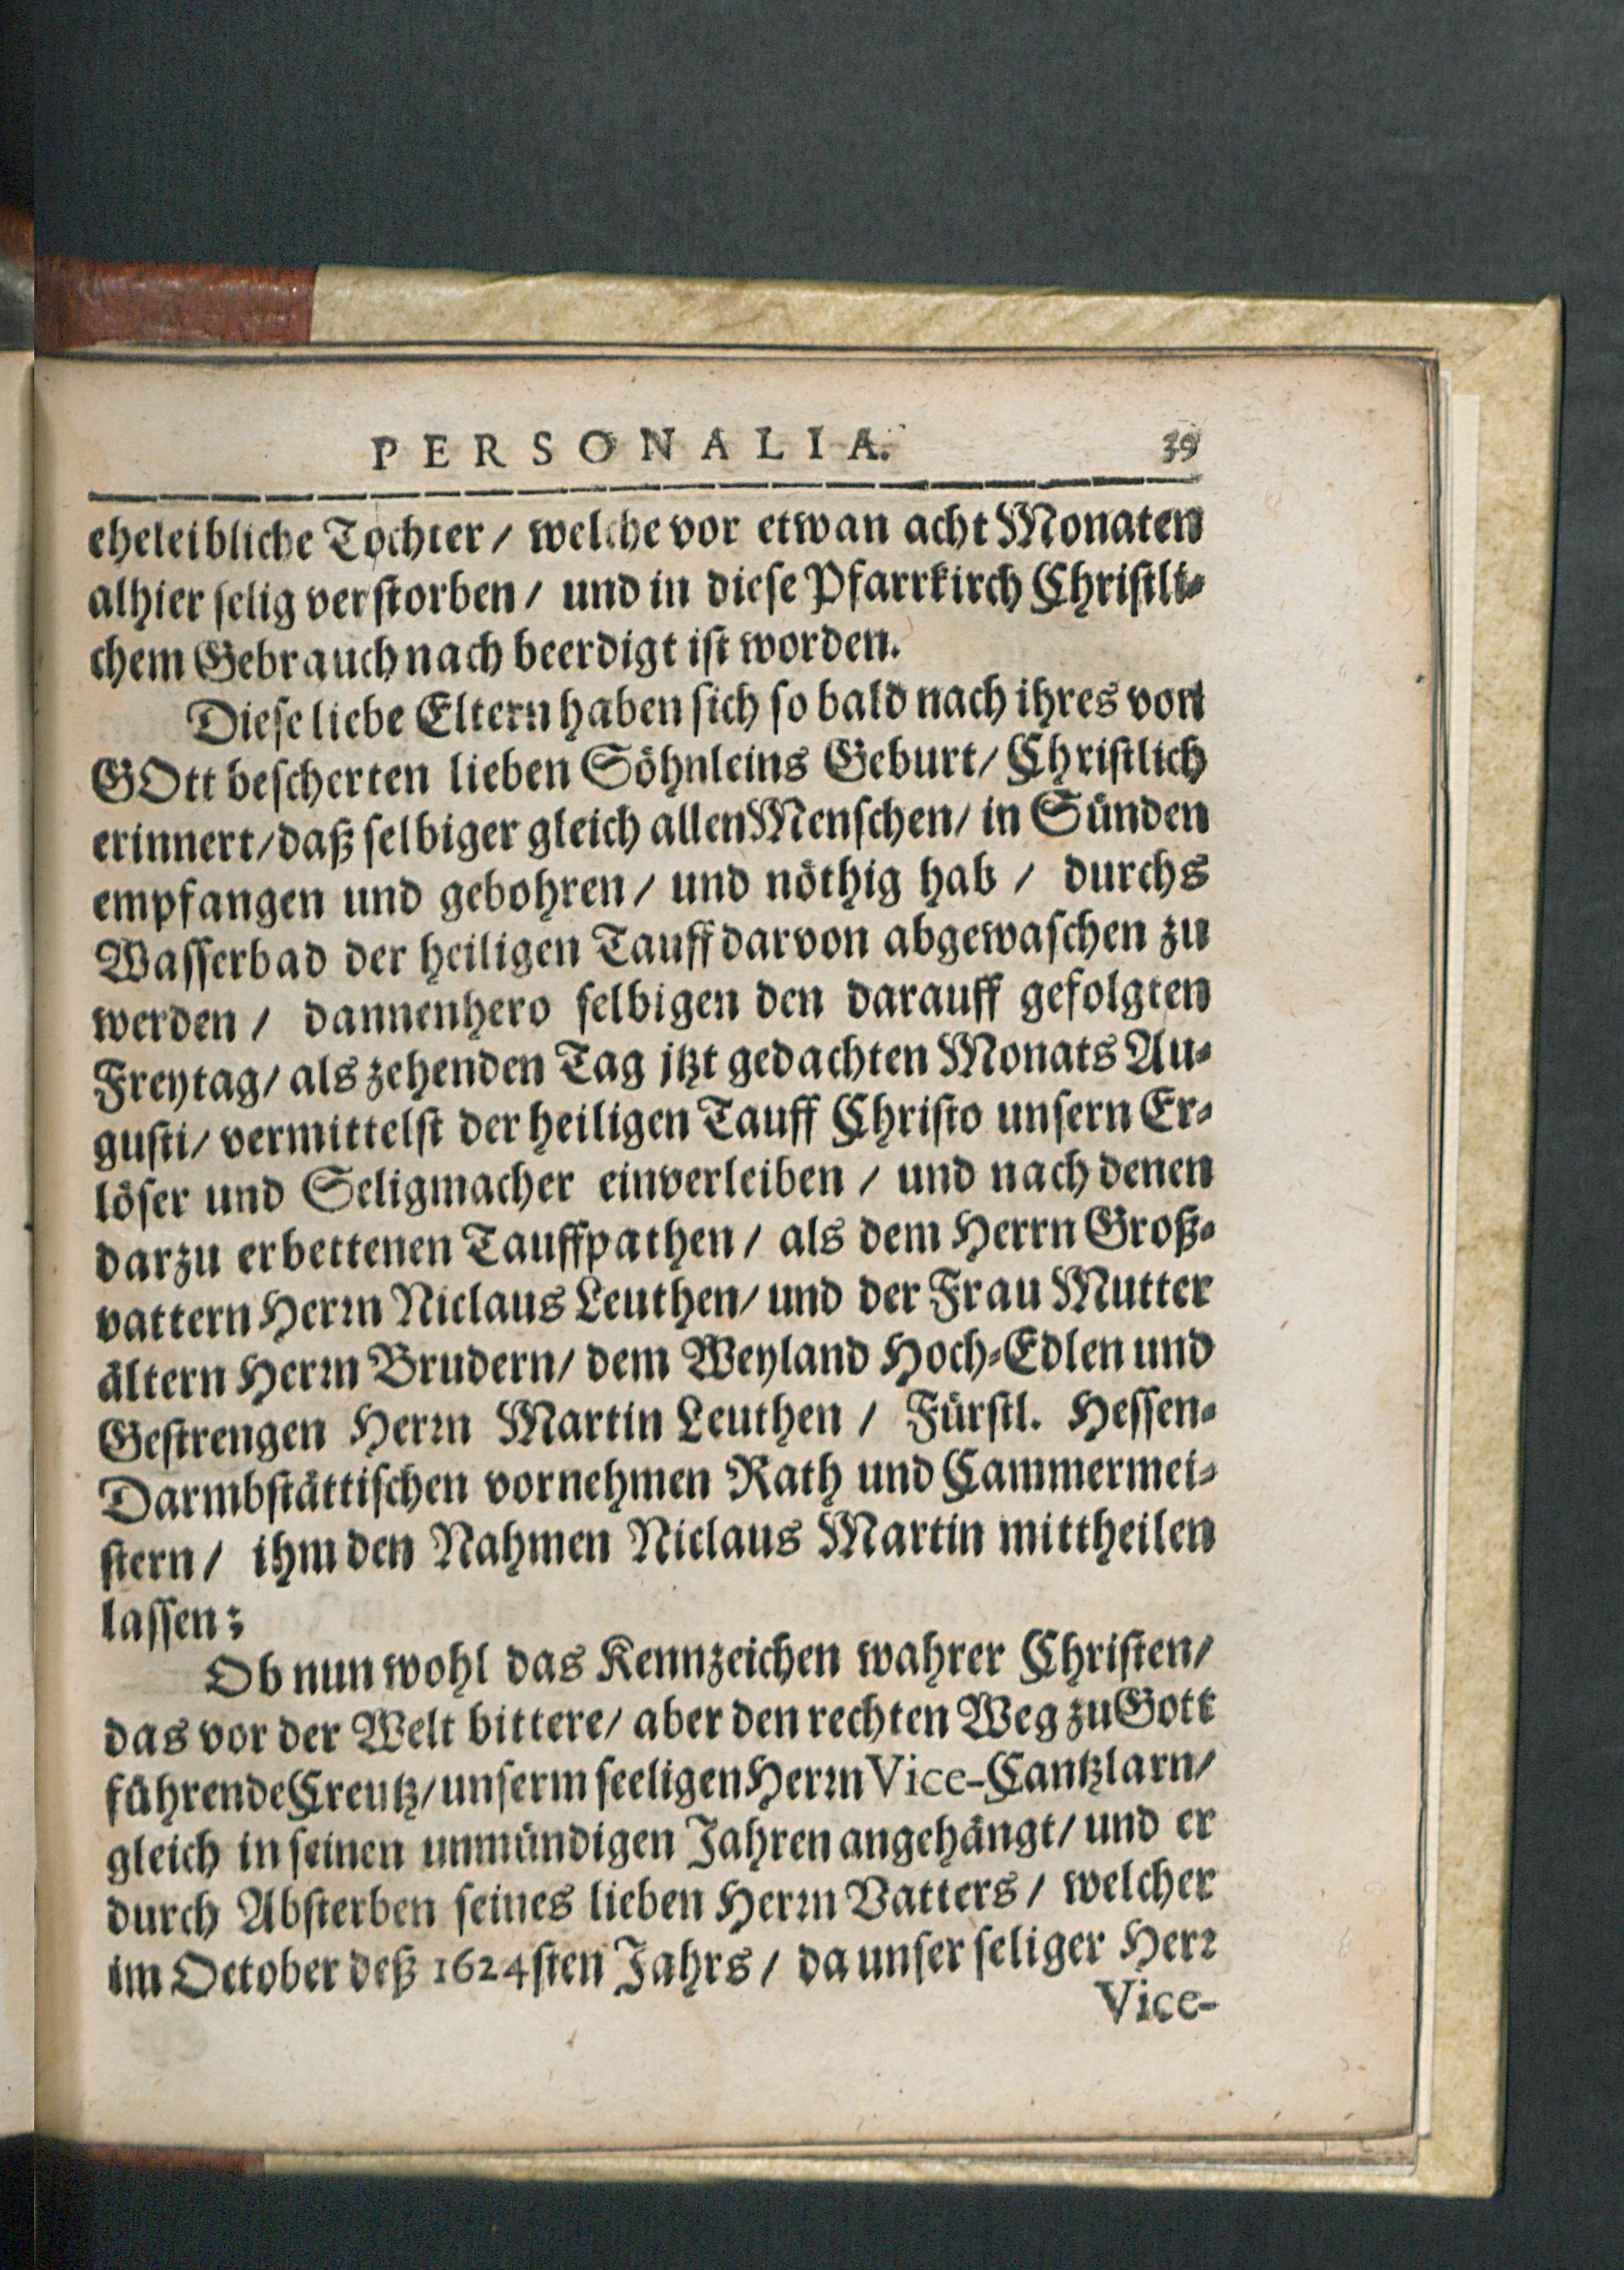 PERSONALIA. 39
eheleibliche Tochter / welche vor etwan acht Monaten
alhier selig verstorben / und in diese Pfarrkirch Christli-
chem Gebrauch nach beerdigt ist worden.
Diese liebe Eltern haben sich so bald nach ihres von
GOtt bescherten lieben Söhnleins Geburt / Christlich
erinnert / daß selbiger gleich allen Menschen / in Sünden
empfangen und gebohren / und nöthig hab / durchs
Wasserbad der heiligen Tauff darvon abgewaschen zu
werden / dannenhero selbigen den darauff gefolgten
Freytag / als zehenden Tag jtzt gedachten Monats Au-
gusti / vermittelst der heiligen Tauff Christo unsern Er-
löser und Seligmacher einverleiben / und nach denen
darzu erbettenen Tauffpathen / als dem Herrn Groß-
vattern Herrn Niclaus Leuthen / und der Frau Mutter
ältern Herrn Brudern / dem Weyland Hoch-Edlen und
Gestrengen Herrn Martin Leuthen / Fürstl. Hessen-
Darmbstättischen vornehmen Rath und Cammermei-
stern / ihm den Nahmen Niclaus Martin mittheilen
lassen:
Ob nun wohl das Kennzeichen wahrer Christen /
das vor der Welt bittere / aber den rechten Weg zu Gott
führende Creutz / unserm seeligen Herrn Vice-Cantzlarn /
gleich in seinen unmündigen Jahren angehängt / und er
durch Absterben seines lieben Herrn Vatters / welcher
im October deß 1624sten Jahrs / da unser seliger Herr
Vice-